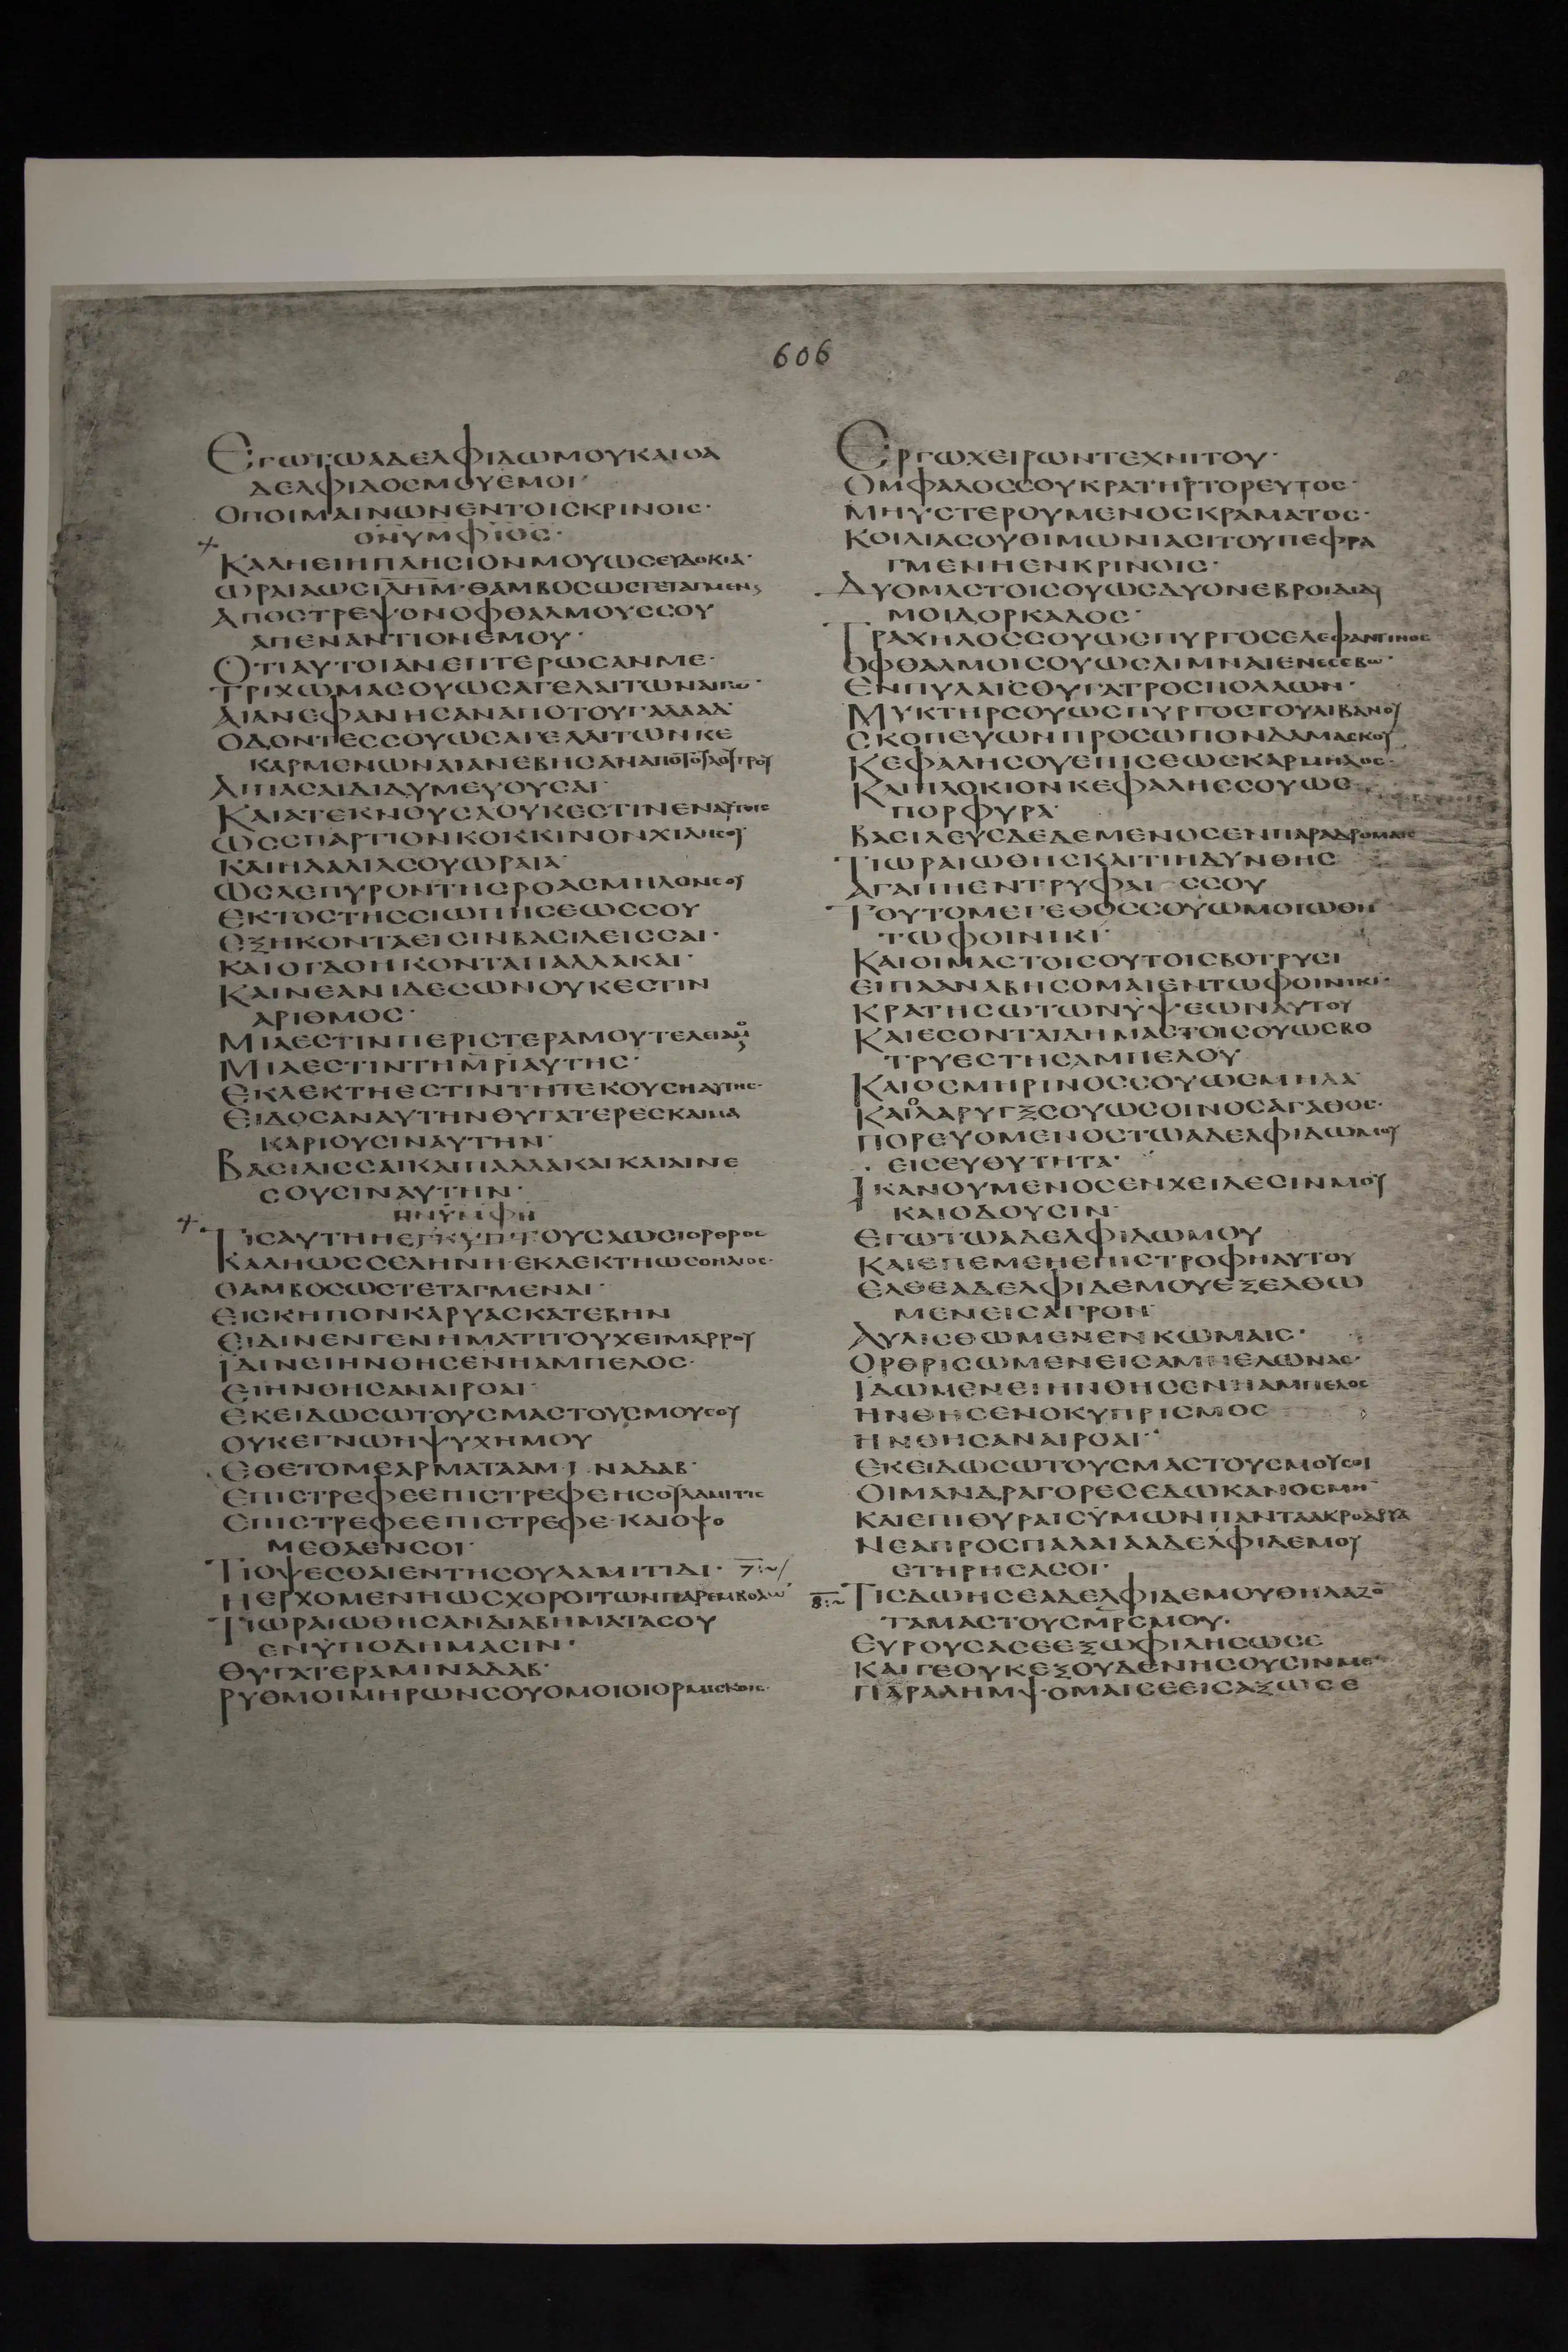 606
ΕΓΩΤΩΑΔΕΛΦΙΔΩΜΟΥΚΑΙΟΑ
ΔΕΛΦΙΔΟΣΜΟΥΕΜΟΙ·
ΟΠΟΙΜΑΙΝΩΝΕΝΤΟΙΣΚΡΙΝΟΙΣ·
ΟΝΥΜΦΙΟΣ·
ΚΑΛΗΕΙΗΠΛΗΣΙΟΝΜΟΥΩΣΕΥΔΟΚΙΑ·
ΩΡΑΙΑΩΣΙΛΗΜ·ΘΑΜΒΟΣΩΣΤΕΤΑΓΜΕΝ
ΑΠΟΣΤΡΕΨΟΝΟΦΘΑΛΜΟΥΣΣΟΥ
ΑΠΕΝΑΝΤΙΟΝΕΜΟΥ·
ΟΤΙΑΥΤΟΙΑΝΕΠΤΕΡΩΣΑΝΜΕ·
ΤΡΙΧΩΜΑΣΟΥΩΣΑΓΕΛΑΙΤΩΝΑΙΓΩ·
ΑΙΑΝΕΦΑΝΗΣΑΝΑΠΟΤΟΥΓΑΛΑΑΔ·
ΟΔΟΝΤΕΣΣΟΥΩΣΑΓΕΛΑΙΤΩΝΚΕ
ΚΑΡΜΕΝΩΝΑΙΑΝΕΒΗΣΑΝΑΠΟΤΟΥΛΟΥΤΡΟΥ
ΑΙΠΑΣΑΙΔΙΔΥΜΕΥΟΥΣΑΙ·
ΚΑΙΑΤΕΚΝΟΥΣΑΟΥΚΕΣΤΙΝΕΝΑΥΤΑΙΣ
ΩΣΣΠΑΡΤΙΟΝΚΟΚΚΙΝΟΝΧΙΛΗΣΟΥ
ΚΑΙΗΛΑΛΙΑΣΟΥΩΡΑΙΑ·
ΩΣΛΕΠΥΡΟΝΤΗΣΡΟΑΣΜΗΛΟΝΣΟΥ
ΕΚΤΟΣΤΗΣΣΙΩΠΗΣΕΩΣΣΟΥ
ΕΞΗΚΟΝΤΑΕΙΣΙΝΒΑΣΙΛΕΙΣΣΑΙ·
ΚΑΙΟΓΔΟΗΚΟΝΤΑΠΑΛΛΑΚΑΙ·
ΚΑΙΝΕΑΝΙΔΕΣΩΝΟΥΚΕΣΤΙΝ
ΑΡΙΘΜΟΣ·
ΜΙΑΕΣΤΙΝΠΕΡΙΣΤΕΡΑΜΟΥΤΕΛΕΙΑΜΟ
ΜΙΑΕΣΤΙΝΤΗΜΡΙΑΥΤΗΣ·
ΕΚΛΕΚΤΗΕΣΤΙΝΤΗΤΕΚΟΥΣΗΑΥΤΗΣ·
ΕΙΔΟΣΑΝΑΥΤΗΝΘΥΓΑΤΕΡΕΣΚΑΙΜΑ
ΚΑΡΙΟΥΣΙΝΑΥΤΗΝ·
ΒΑΣΙΛΙΣΣΑΙΚΑΙΠΑΛΛΑΚΑΙΚΑΙΑΙΝΕ
ΣΟΥΣΙΝΑΥΤΗΝ·
ΗΝΥΜΦΗ
ΤΙΣΑΥΤΗΗΕΓΚΥΠΤΟΥΣΑΩΣΙΟΡΘΡΟΣ
ΚΑΛΗΩΣΣΕΛΗΝΗ·ΕΚΛΕΚΤΗΩΣΟΗΛΙΟΣ·
ΘΑΜΒΟΣΩΣΤΕΤΑΓΜΕΝΑΙ·
ΕΙΣΚΗΠΟΝΚΑΡΥΑΣΚΑΤΕΒΗΝ
ΕΙΔΙΝΕΝΓΕΝΗΜΑΤΙΤΟΥΧΕΙΜΑΡΡΟΥ
ΙΔΙΝΕΙΗΝΘΗΣΕΝΗΑΜΠΕΛΟΣ·
ΕΙΗΝΘΗΣΑΝΑΙΡΟΑΙ·
ΕΚΕΙΔΩΣΩΤΟΥΣΜΑΣΤΟΥΣΜΟΥΣΟΥ
ΟΥΚΕΓΝΩΗΨΥΧΗΜΟΥ
ΕΘΕΤΟΜΕΑΡΜΑΤΑΑΜΙΝΑΔΑΒ·
ΕΠΙΣΤΡΕΦΕΕΠΙΣΤΡΕΦΕΗΣΟΥΛΑΜΙΤΙΣ
ΕΠΙΣΤΡΕΦΕΕΠΙΣΤΡΕΦΕ·ΚΑΙΟΨΟ
ΜΕΘΑΕΝΣΟΙ·
ΤΙΟΨΕΣΘΑΙΕΝΤΗΣΟΥΛΑΜΙΤΙΔΙ· 7:~/
ΗΕΡΧΟΜΕΝΗΩΣΧΟΡΟΙΤΩΝΠΑΡΕΜΒΟΛΩ
ΤΙΩΡΑΙΩΘΗΣΑΝΔΙΑΒΗΜΑΤΑΣΟΥ
ΕΝΥΠΟΔΗΜΑΣΙΝ·
ΘΥΓΑΤΕΡΑΜΙΝΑΔΑΒ·
ΡΥΘΜΟΙΜΗΡΩΝΣΟΥΟΜΟΙΟΙΟΡΜΙΣΚΟΙΣ·
ΕΡΓΩΧΕΙΡΩΝΤΕΧΝΙΤΟΥ·
ΟΜΦΑΛΟΣΣΟΥΚΡΑΤΗΡΤΟΡΕΥΤΟΣ·
ΜΗΥΣΤΕΡΟΥΜΕΝΟΣΚΡΑΜΑΤΟΣ·
ΚΟΙΛΙΑΣΟΥΘΙΜΩΝΙΑΣΙΤΟΥΠΕΦΡΑ
ΓΜΕΝΗΕΝΚΡΙΝΟΙΣ·
ΔΥΟΜΑΣΤΟΙΣΟΥΩΣΔΥΟΝΕΒΡΟΙΔΙΔΥ
ΜΟΙΔΟΡΚΑΔΟΣ·
ΤΡΑΧΗΛΟΣΣΟΥΩΣΠΥΡΓΟΣΕΛΕΦΑΝΤΙΝΟΣ
ΟΦΘΑΛΜΟΙΣΟΥΩΣΛΙΜΝΑΙΕΝΕΣΕΒΩ·
ΕΝΠΥΛΑΙΣΘΥΓΑΤΡΟΣΠΟΛΛΩΝ·
ΜΥΚΤΗΡΣΟΥΩΣΠΥΡΓΟΣΤΟΥΛΙΒΑΝΟΥ
ΣΚΟΠΕΥΩΝΠΡΟΣΩΠΟΝΔΑΜΑΣΚΟΥ
ΚΕΦΑΛΗΣΟΥΕΠΙΣΕΩΣΚΑΡΜΗΛΟΣ·
ΚΑΙΠΛΟΚΙΟΝΚΕΦΑΛΗΣΣΟΥΩΣ
ΠΟΡΦΥΡΑ·
ΒΑΣΙΛΕΥΣΔΕΔΕΜΕΝΟΣΕΝΠΑΡΑΔΡΟΜΑΙΣ
ΤΙΩΡΑΙΩΘΗΣΚΑΙΤΙΗΔΥΝΘΗΣ
ΑΓΑΠΗΕΝΤΡΥΦΑΙΣΣΟΥ
ΤΟΥΤΟΜΕΓΕΘΟΣΣΟΥΩΜΟΙΩΘΗ
ΤΩΦΟΙΝΙΚΙ·
ΚΑΙΟΙΜΑΣΤΟΙΣΟΥΤΟΙΣΒΟΤΡΥΣΙ
ΕΙΠΑΑΝΑΒΗΣΟΜΑΙΕΝΤΩΦΟΙΝΙΚΙ·
ΚΡΑΤΗΣΩΤΩΝΥΨΕΩΝΑΥΤΟΥ
ΚΑΙΕΣΟΝΤΑΙΔΗΜΑΣΤΟΙΣΟΥΩΣΒΟ
ΤΡΥΕΣΤΗΣΑΜΠΕΛΟΥ
ΚΑΙΟΣΜΗΡΙΝΟΣΣΟΥΩΣΜΗΛΑ·
ΚΑΙΟΛΑΡΥΓΞΣΟΥΩΣΟΙΝΟΣΑΓΑΘΟΣ·
ΠΟΡΕΥΟΜΕΝΟΣΤΩΑΔΕΛΦΙΔΩΜΟΥ
ΕΙΣΕΥΘΥΤΗΤΑ·
ΙΚΑΝΟΥΜΕΝΟΣΕΝΧΕΙΛΕΣΙΝΜΟΥ
ΚΑΙΟΔΟΥΣΙΝ·
ΕΓΩΤΩΑΔΕΛΦΙΔΩΜΟΥ
ΚΑΙΕΠΕΜΕΗΕΠΙΣΤΡΟΦΗΑΥΤΟΥ
ΕΛΘΕΑΔΕΛΦΙΔΕΜΟΥΕΞΕΛΘΩ
ΜΕΝΕΙΣΑΓΡΟΝ·
ΑΥΛΙΣΘΩΜΕΝΕΝΚΩΜΑΙΣ·
ΟΡΘΡΙΣΩΜΕΝΕΙΣΑΜΠΕΛΩΝΑΣ·
ΙΔΩΜΕΝΕΙΗΝΘΗΣΕΝΗΑΜΠΕΛΟΣ
ΗΝΘΗΣΕΝΟΚΥΠΡΙΣΜΟΣ
ΗΝΘΗΣΑΝΑΙΡΟΑΙ·
ΕΚΕΙΔΩΣΩΤΟΥΣΜΑΣΤΟΥΣΜΟΥΣΟΙ
ΟΙΜΑΝΔΡΑΓΟΡΕΣΕΔΩΚΑΝΟΣΜΗ
ΚΑΙΕΠΙΘΥΡΑΙΣΥΜΩΝΠΑΝΤΑΑΚΡΟΔΡΥΑ
ΝΕΑΠΡΟΣΠΑΛΑΙΑΑΔΕΛΦΙΔΕΜΟΥ
ΕΤΗΡΗΣΑΣΟΙ·
8:~ ΤΙΣΔΩΗΣΕΑΔΕΛΦΙΔΕΜΟΥΘΗΛΑΖΟ
ΤΑΜΑΣΤΟΥΣΜΡΣΜΟΥ·
ΕΥΡΟΥΣΑΣΕΕΞΩΦΙΛΗΣΩΣΕ
ΚΑΙΓΕΟΥΚΕΞΟΥΔΕΝΗΣΟΥΣΙΝΜΕ·
ΠΑΡΑΛΗΜΨΟΜΑΙΣΕΕΙΣΑΞΩΣΕ